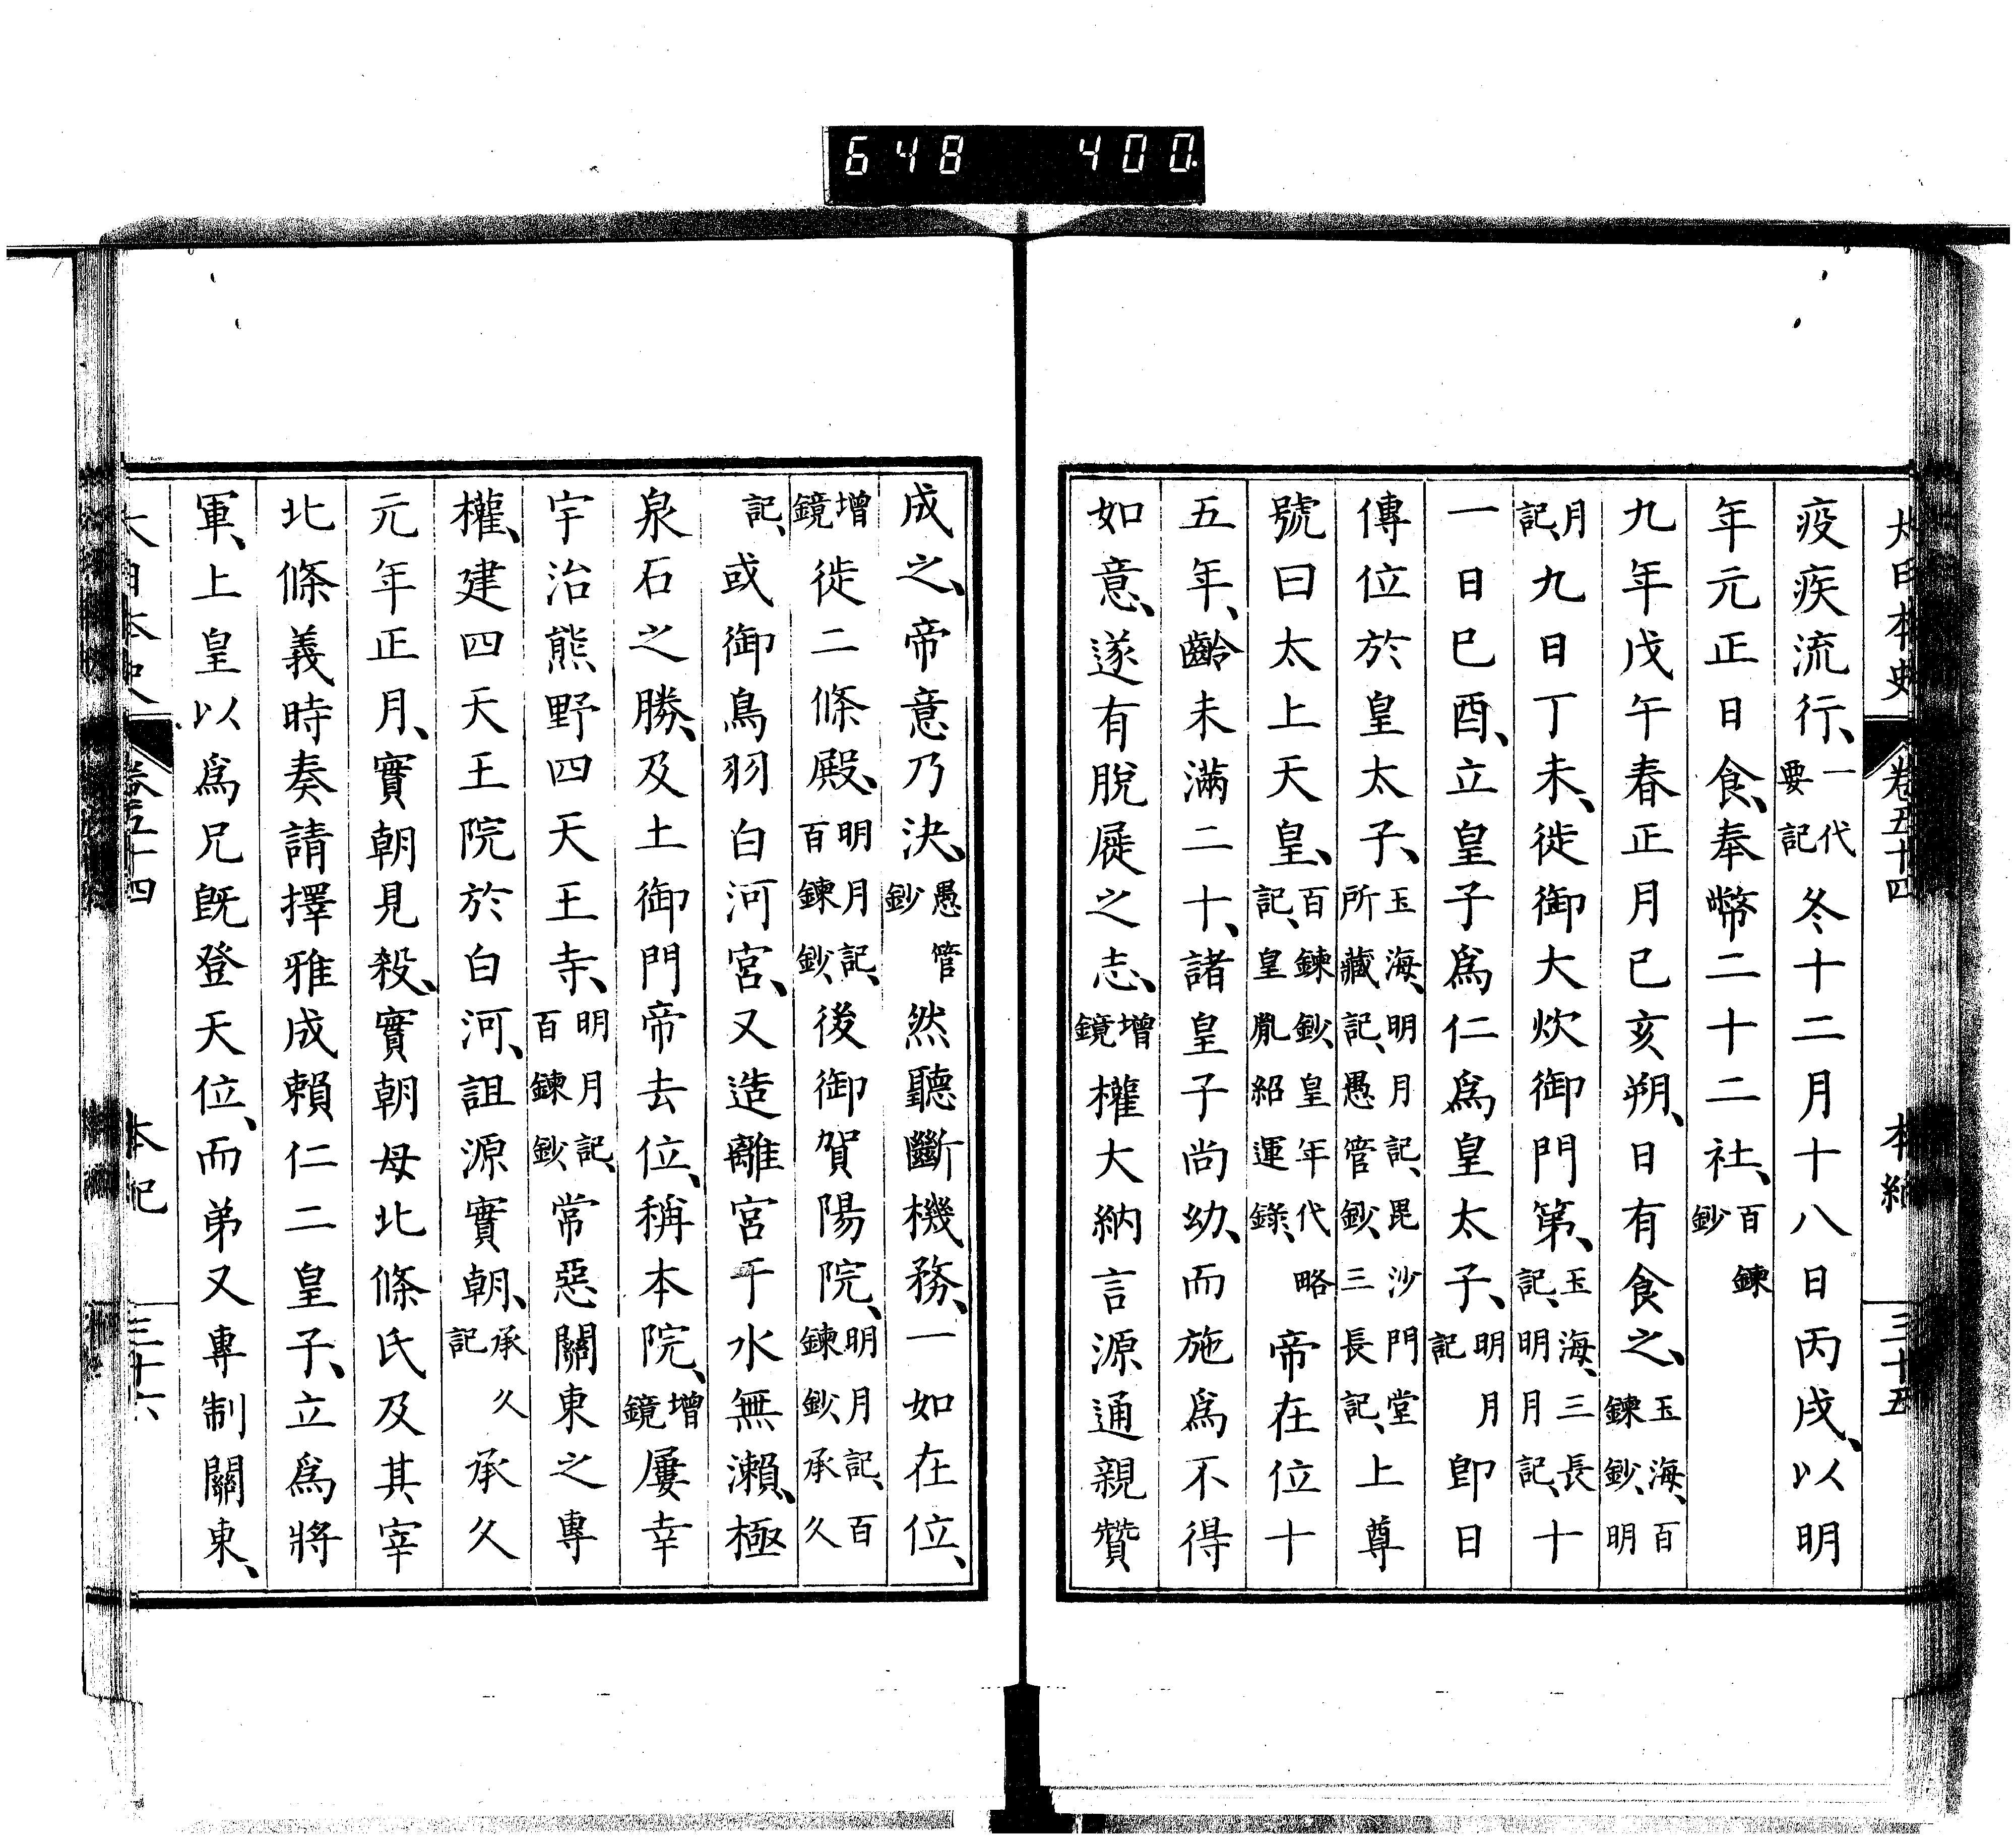 648 400
大日本史 卷五十四 本紀 三十五
疫疾流行、一代要記冬十二月十八日丙戌、以明
年元正日食、奉幣二十二社、百鍊鈔
九年戊午春正月己亥朔、日有食之、玉海、百鍊鈔、明
月記、九日丁未、徙御大炊御門第、玉海、三長記、明月記、十
一日己酉、立皇子爲仁爲皇太子、明月記卽日
傳位於皇太子、玉海、明月記、毘沙門堂所藏記、愚管鈔、三長記、上尊
號曰太上天皇、百鍊鈔、皇年代略記、皇胤紹運錄、帝在位十
五年、齡未滿二十、諸皇子尚幼、而施爲不得
如意、遂有脫屣之志、增鏡權大納言源通親贊
成之、帝意乃決、愚管鈔然聽斷機務、一如在位、
增鏡徙二條殿、明月記、百鍊鈔、後御賀陽院、明月記、百鍊鈔、承久
記、或御鳥羽白河宮、又造離宮于水無瀨、極
泉石之勝、及土御門帝去位、稱本院、增鏡屢幸
宇治熊野四天王寺、明月記、百鍊鈔、常惡關東之專
權、建四天王院於白河、詛源實朝、承久記承久
元年正月、實朝見殺、實朝母北條氏及其宰
北條義時奏請擇雅成賴仁二皇子、立爲將
軍、上皇以爲兄旣登天位、而弟又專制關東、
大日本史 卷五十四 本紀 三十六